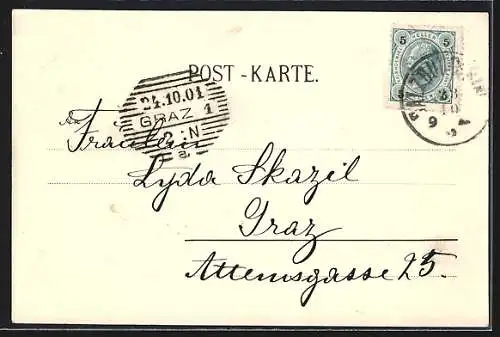 POST - KARTE.
5 HELLER 5
24.10.01
GRAZ 1
2.N
a.
An
Fräulein
Lyda Skazil
Graz
Attemsgasse 25.